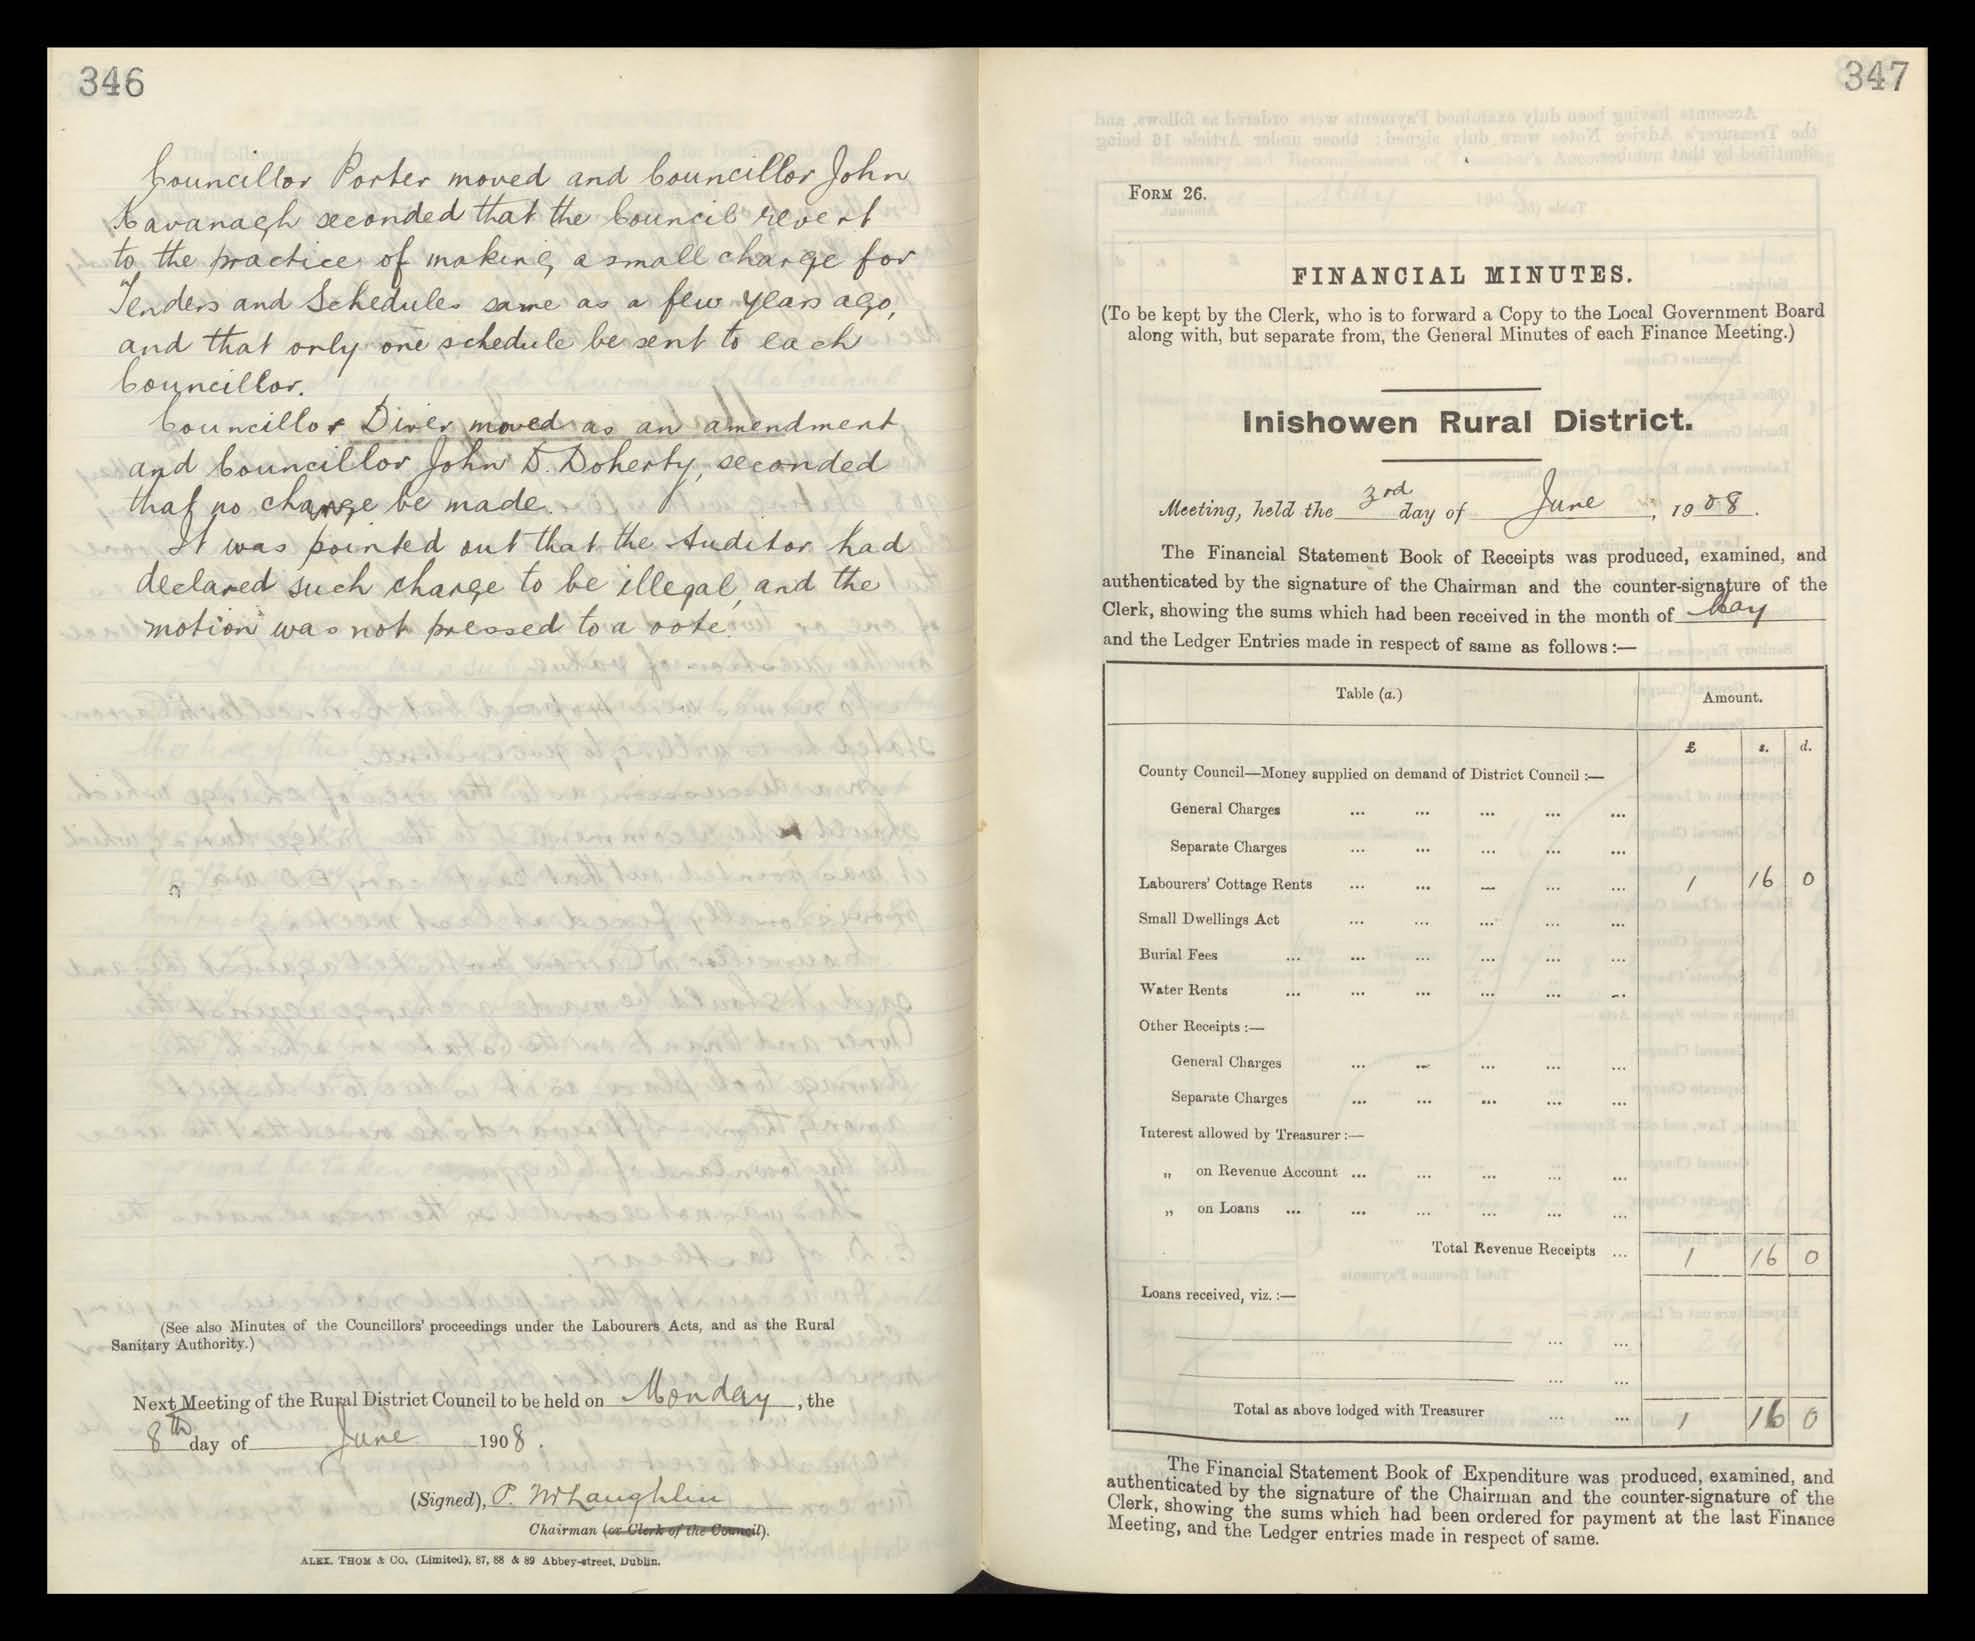 346
Councillor Porter moved and Councillor John
Kavanagh seconded that the Council revert
to the practice of making a small charge for
Tenders and Schedules same as a few years ago,
and that only one schedule be sent to each
Councillor.
Councillor Diver moved as an amendment
and Councillor John D. Doherty, seconded
that no change be made.
It was pointed out that the Auditor had
declared such charge to be illegal, and the
motion was not pressed to a vote.
(See also Minutes of the Councillors' proceedings under the Labourers Acts, and as the Rural
Sanitary Authority.)
Next Meeting of the Rural District Council to be held on Monday, the
8th day of June 1908.
(Signed), P. McLaughlin
Chairman (or Clerk of the Council).
ALEX. THOM & CO. (Limited), 87, 88 & 89 Abbey-street, Dublin.
347
FORM 26.
FINANCIAL MINUTES.
(To be kept by the Clerk, who is to forward a Copy to the Local Government Board
along with, but separate from, the General Minutes of each Finance Meeting.)
Inishowen Rural District.
Meeting, held the 3rd day of June, 1908.
The Financial Statement Book of Receipts was produced, examined, and
authenticated by the signature of the Chairman and the counter-signature of the
Clerk, showing the sums which had been received in the month of May
and the Ledger Entries made in respect of same as follows :—
Table (a.) Amount.
£ s. d.
County Council—Money supplied on demand of District Council :—
General Charges ... ... ... ... ...
Separate Charges ... ... ... ... ...
Labourers' Cottage Rents ... ... ... ... ... 1 16 0
Small Dwellings Act ... ... ... ... ...
Burial Fees ... ... ... ... ... ...
Water Rents ... ... ... ... ... ...
Other Receipts :—
General Charges ... ... ... ... ...
Separate Charges ... ... ... ... ...
Interest allowed by Treasurer :—
„ on Revenue Account ... ... ... ... ...
„ on Loans ... ... ... ... ... ...
Total Revenue Receipts ... 1 16 0
Loans received, viz. :—
... ...
... ...
Total as above lodged with Treasurer ... ... 1 16 0
The Financial Statement Book of Expenditure was produced, examined, and
authenticated by the signature of the Chairman and the counter-signature of the
Clerk, showing the sums which had been ordered for payment at the last Finance
Meeting, and the Ledger entries made in respect of same.